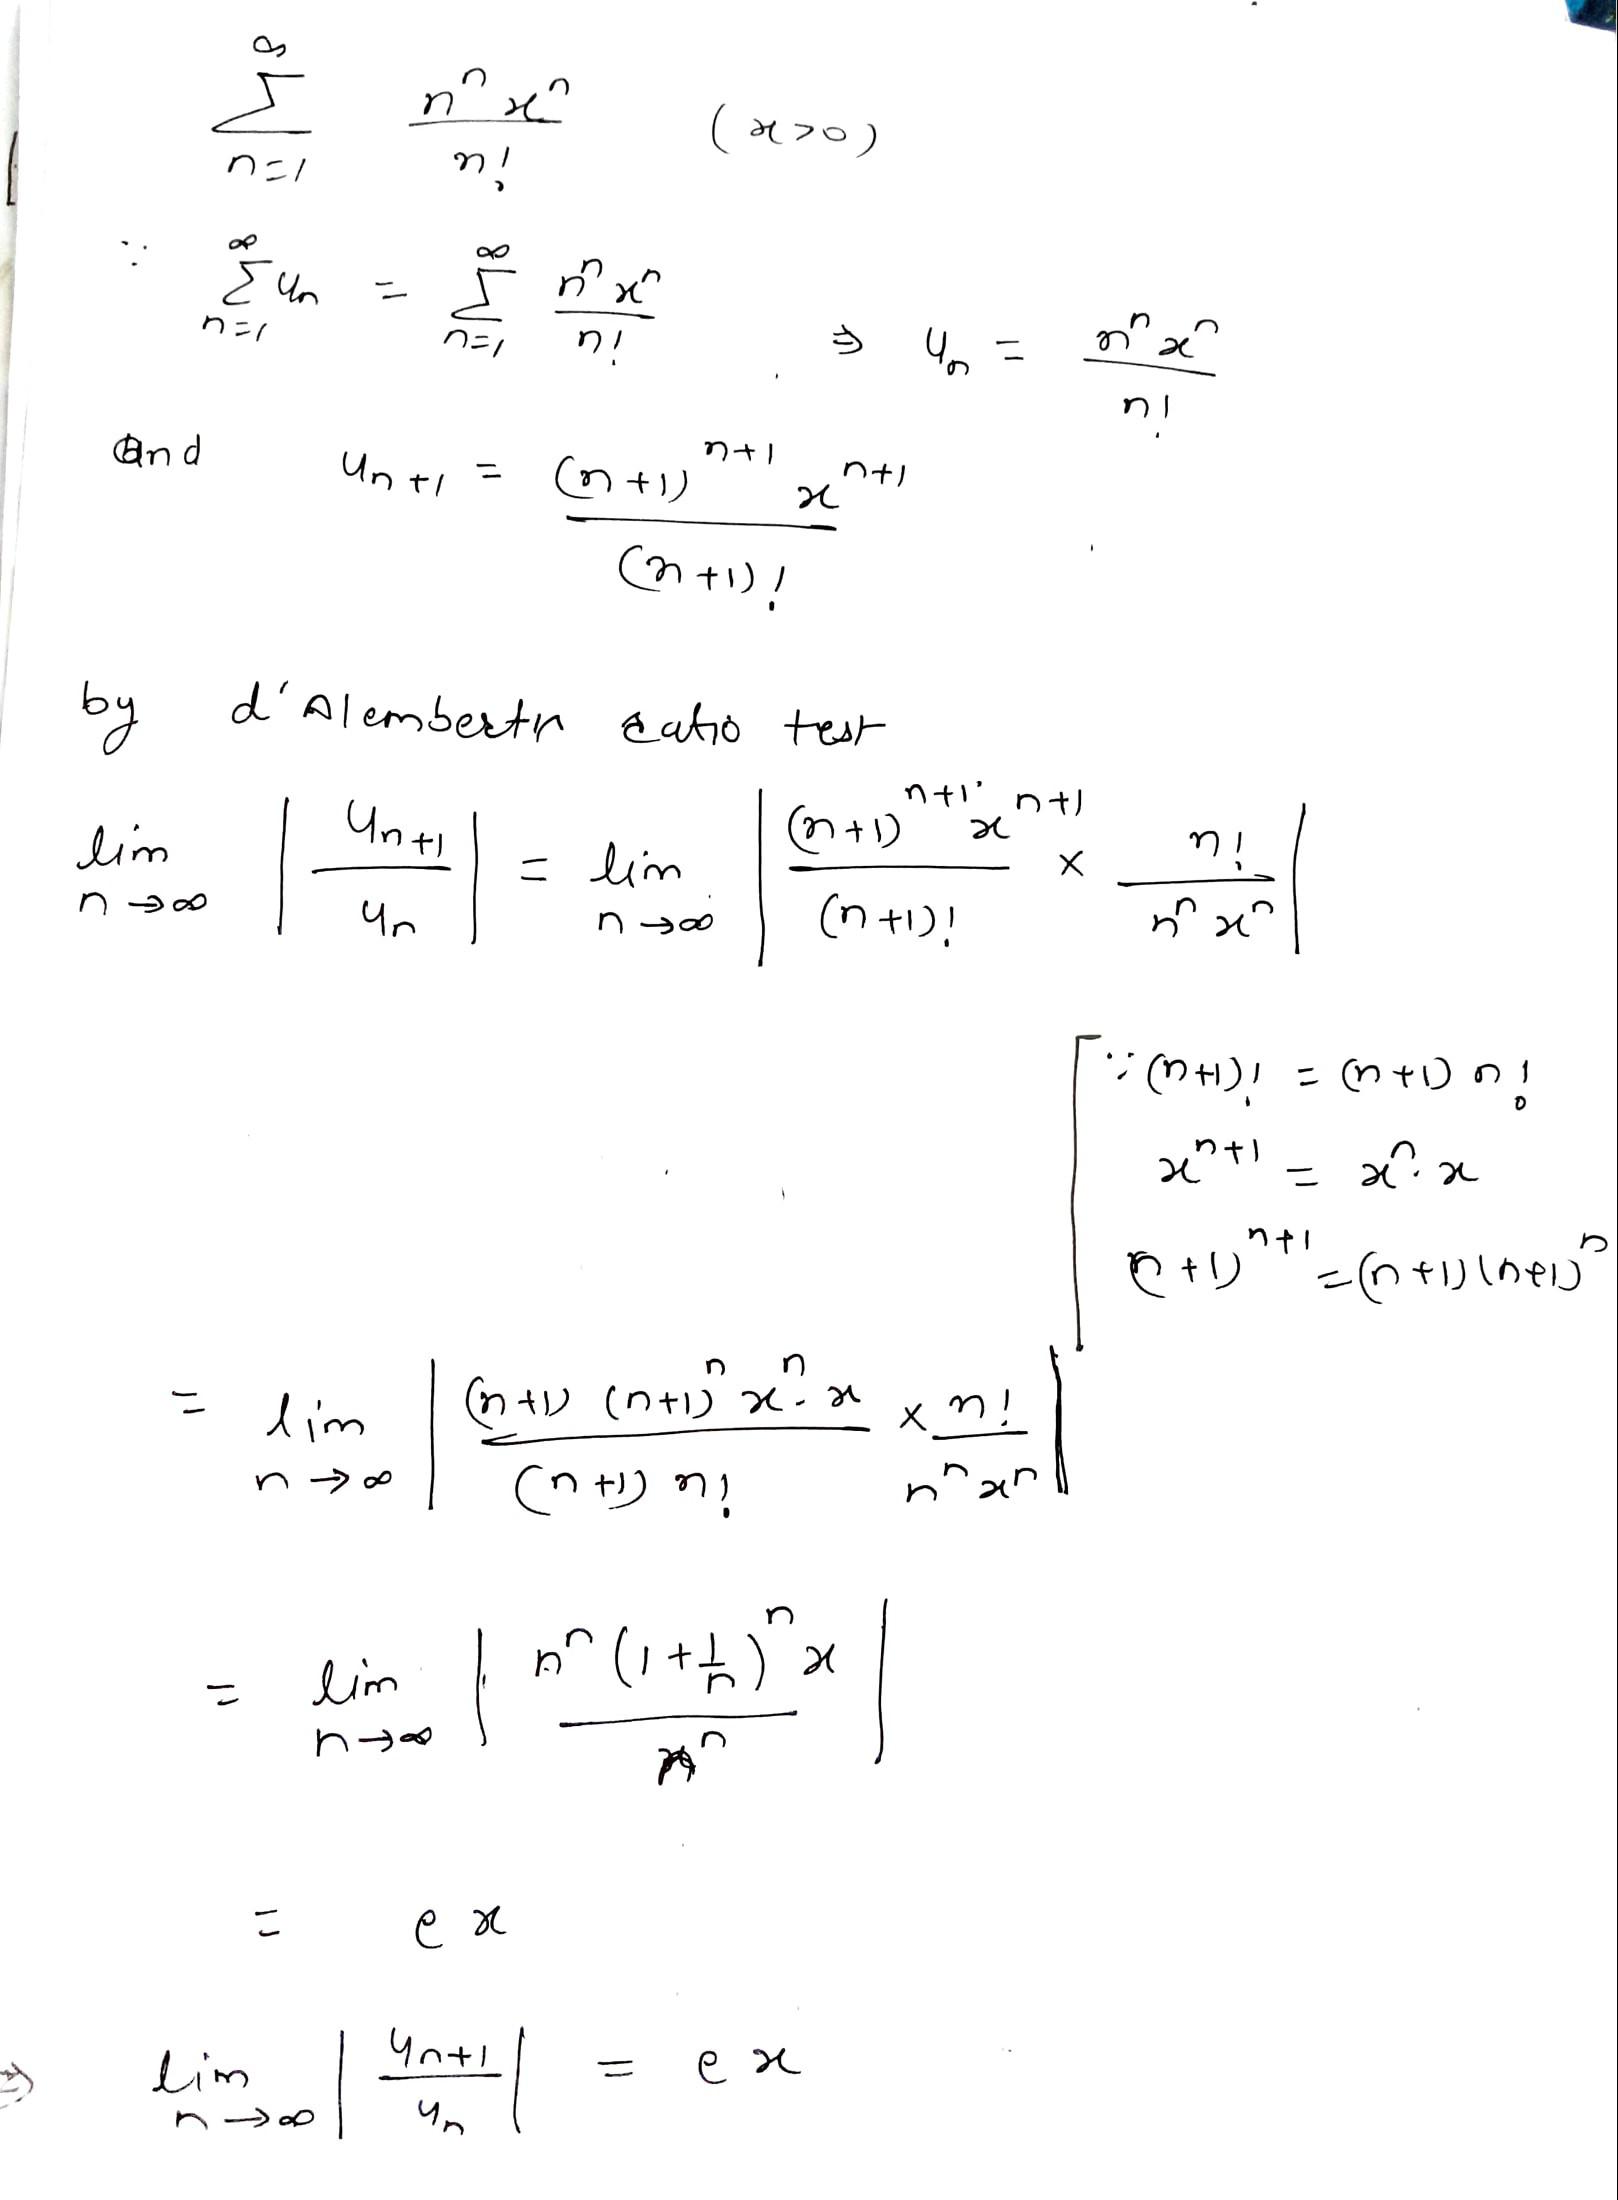 ∞
∑ n^n x^n / n! (x>0)
n=1
∵ ∞∑n=1 u_n = ∞∑n=1 n^n x^n / n! ⇒ u_n = n^n x^n / n!
and u_{n+1} = (n+1)^{n+1} x^{n+1} / (n+1)!
by d'Alemberts ratio test
lim n→∞ | u_{n+1} / u_n | = lim n→∞ | (n+1)^{n+1} x^{n+1} / (n+1)! × n! / n^n x^n |
[∵ (n+1)! = (n+1) n!
x^{n+1} = x^n . x
(n+1)^{n+1} = (n+1)(n+1)^n
= lim n→∞ | (n+1) (n+1)^n x^n . x / (n+1) n! × n! / n^n x^n |
= lim n→∞ | n^n (1+1/n)^n x / n^n |
= e x
⇒ lim n→∞ | u_{n+1} / u_n | = e x